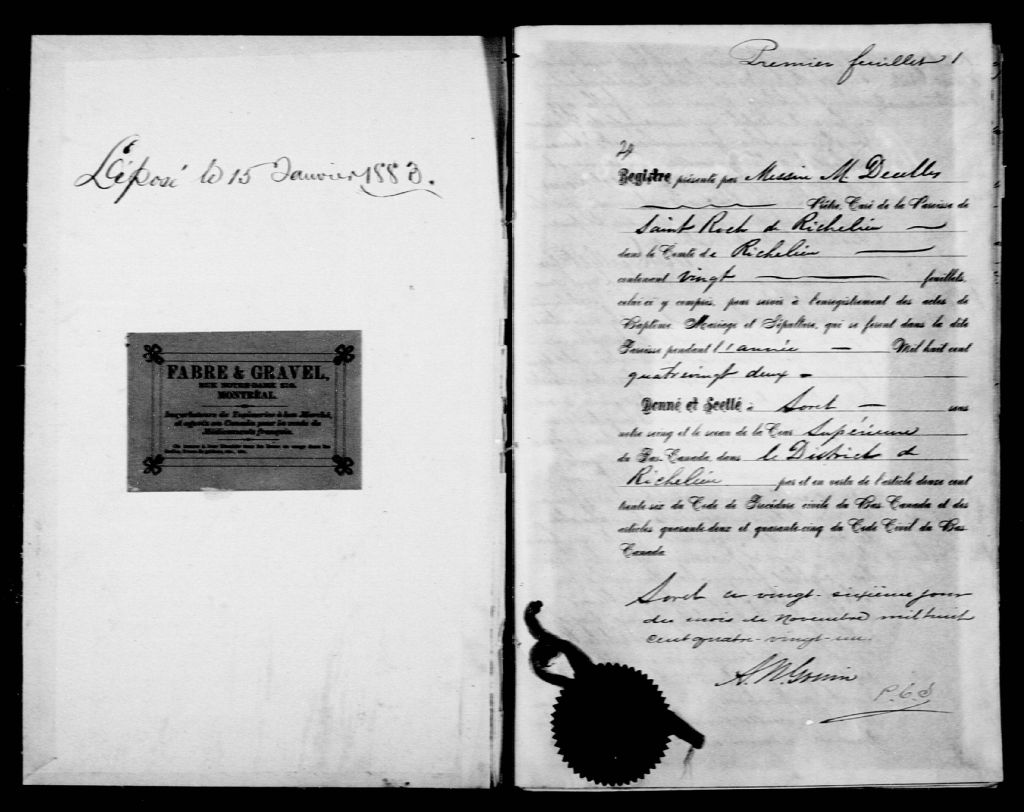 Déposé le 15 Janvier 1883.
FABRE & GRAVEL,
RUE NOTRE-DAME 219.
MONTRÉAL.
Importateurs de Papeterie à bon Marché,
et agents en Canada pour la vente de
Médicaments français.
Premier feuillet 1
Registre présenté par Messire M. Decelles
Prêtre, Curé de la Paroisse de
Saint Roch de Richelieu
dans le Comté de Richelieu
contenant vingt feuillets,
celui-ci y compris, pour servir à l'enregistrement des actes de
Baptême, Mariage et Sépulture, qui se feront dans la dite
Paroisse pendant l'année Mil huit cent
quatrevingt deux
Donné et Scellé à Sorel sous
notre seing et le sceau de la Cour Supérieure
du Bas-Canada, dans le District de
Richelieu par et en vertu de l'article douze cent
trente-six du Code de Procédure civile du Bas Canada et des
articles quarante-deux et quarante-cinq du Code Civil du Bas
Canada
Sorel ce vingt-sixième jour
du mois de Novembre mil huit
cent quatre-vingt-un.
A. N. Gouin
P.C.S